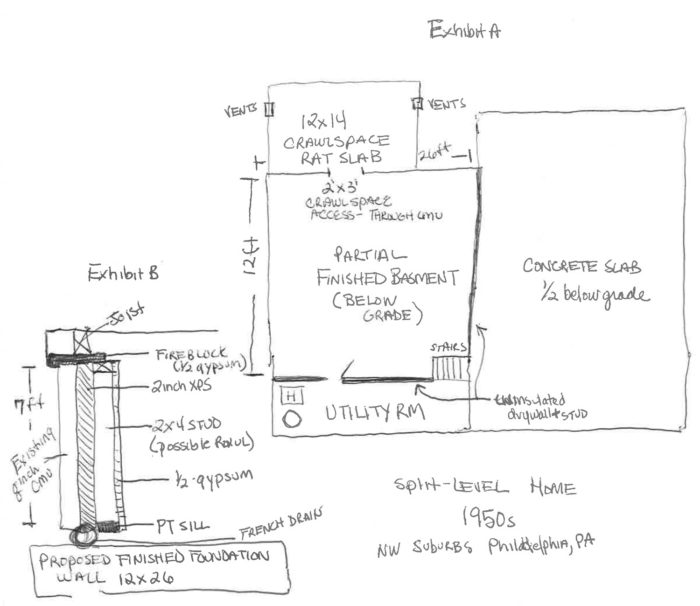 Exhibit A
VENTS
VENTS
12x14
CRAWLSPACE
RAT SLAB
26ft
2'x3'
CRAWLSPACE
ACCESS - THROUGH CMU
12ft
PARTIAL
FINISHED BASMENT
(BELOW
GRADE)
CONCRETE SLAB
1/2 below grade
STAIRS
H
UTILITY RM
uninsulated
drywall + STUD
Exhibit B
Joist
FIREBLOCK
(1/2 gypsum)
2inch XPS
7ft
2x4 STUD
(possible ROXUL)
Existing
8 inch
CMU
1/2 gypsum
PT SILL
FRENCH DRAIN
PROPOSED FINISHED FOUNDATION
WALL 12x26
SPLIT-LEVEL HOME
1950s
NW SUBURBS Philddelphia, PA